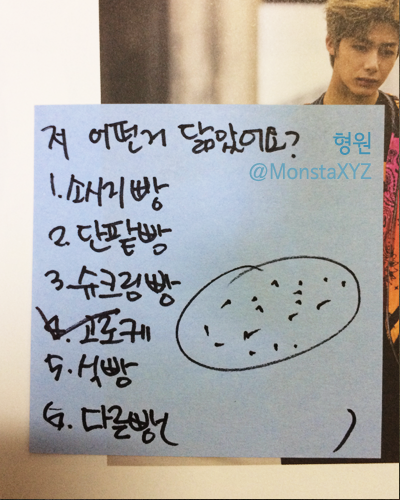 저 어떤거 닮았어요?
형원
@MonstaXYZ
1. 소시지빵
2. 단팥빵
3. 슈크림빵
4. 고로케
5. 식빵
6. 다른빵( )